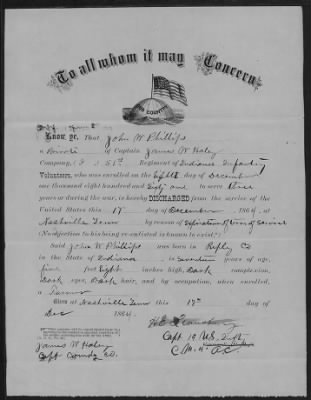 To all whom it may Concern
OUR COUNTRY
Know ye, That John W Phillips
a Private of Captain James W Haley
Company, 51st Regiment of Indiana Infantry
Volunteers, who was enrolled on the Eighth day of December
one thousand eight hundred and Sixty one to serve three
years or during the war, is hereby DISCHARGED from the service of the
United States this 17 day of December 1864, at
Nashville Tenn by reason of Expiration of term of Service
(No objection to his being re-enlisted is known to exist.)
Said John W Phillips was born in Ripley Co
in the state of Indiana is Seventeen years of age,
five feet Eight inches high, Dark complexion,
Dark eyes, Dark hair, and by occupation, when enrolled,
a Farmer
Given at Nashville Tenn this 17th day of
Dec 1864
Capt 19 U.S. Infty
C. M.
James W Haley
Capt Comdg Co.